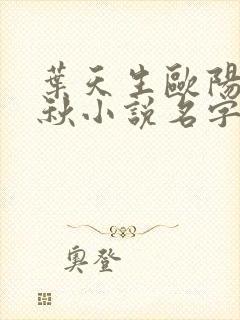 葉天生歐陽
秋小說名字
奧登